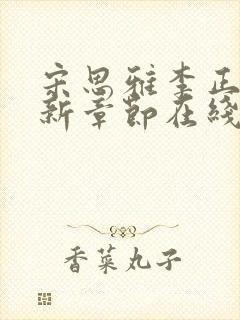 宋思雅李正
新章節在綫
香菜丸子